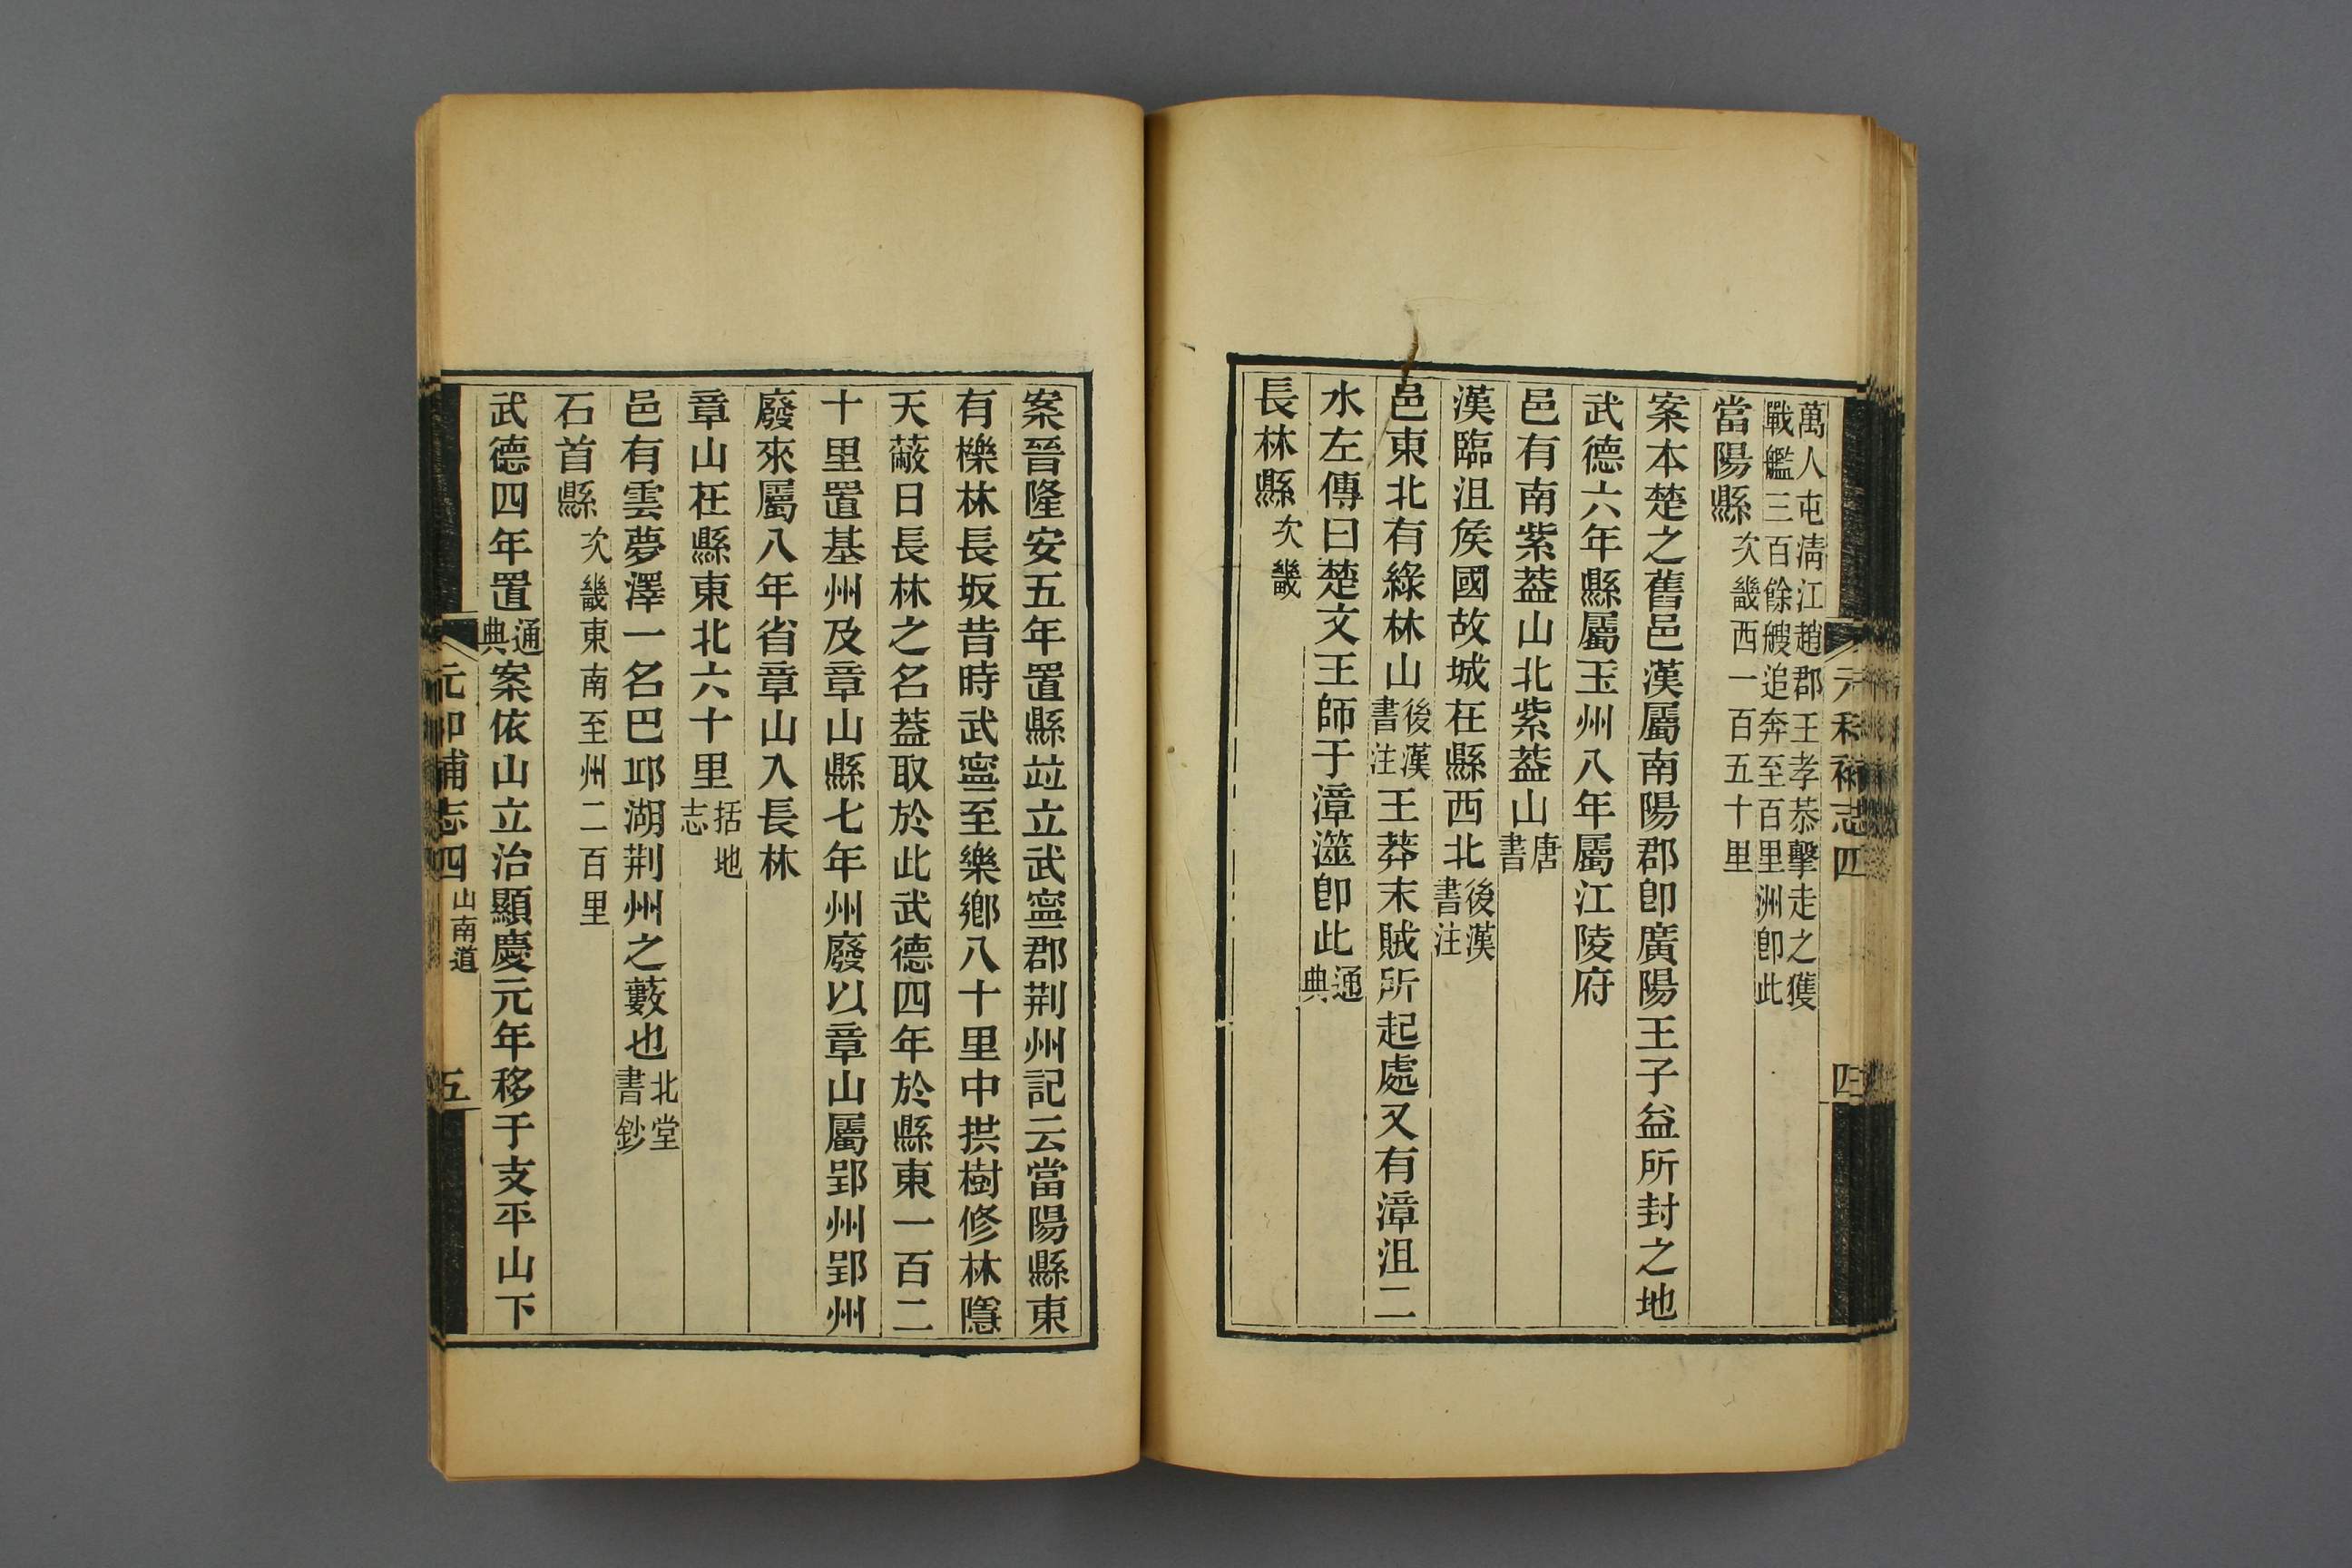 元和補志四 四
萬人屯淸江趙郡王孝恭擊走之獲
戰艦三百餘艘追奔至百里洲卽此
當陽縣次畿西一百五十里
案本楚之舊邑漢屬南陽郡卽廣陽王子益所封之地
武德六年縣屬玉州八年屬江陵府
邑有南紫葢山北紫葢山唐書
漢臨沮矦國故城在縣西北後漢書注
邑東北有綠林山後漢書注王莽末賊所起處又有漳沮二
水左傳曰楚文王師于漳澨卽此通典
長林縣次畿
案晉隆安五年置縣竝立武寧郡荆州記云當陽縣東
有櫟林長坂昔時武寧至樂鄉八十里中拱樹修林隱
天蔽日長林之名葢取於此武德四年於縣東一百二
十里置基州及章山縣七年州廢以章山屬郢州郢州
廢來屬八年省章山入長林
章山在縣東北六十里括地志
邑有雲夢澤一名巴邱湖荆州之藪也北堂書鈔
石首縣次畿東南至州二百里
武德四年置通典案依山立治顯慶元年移于支平山下
元和補志四 山南道 五